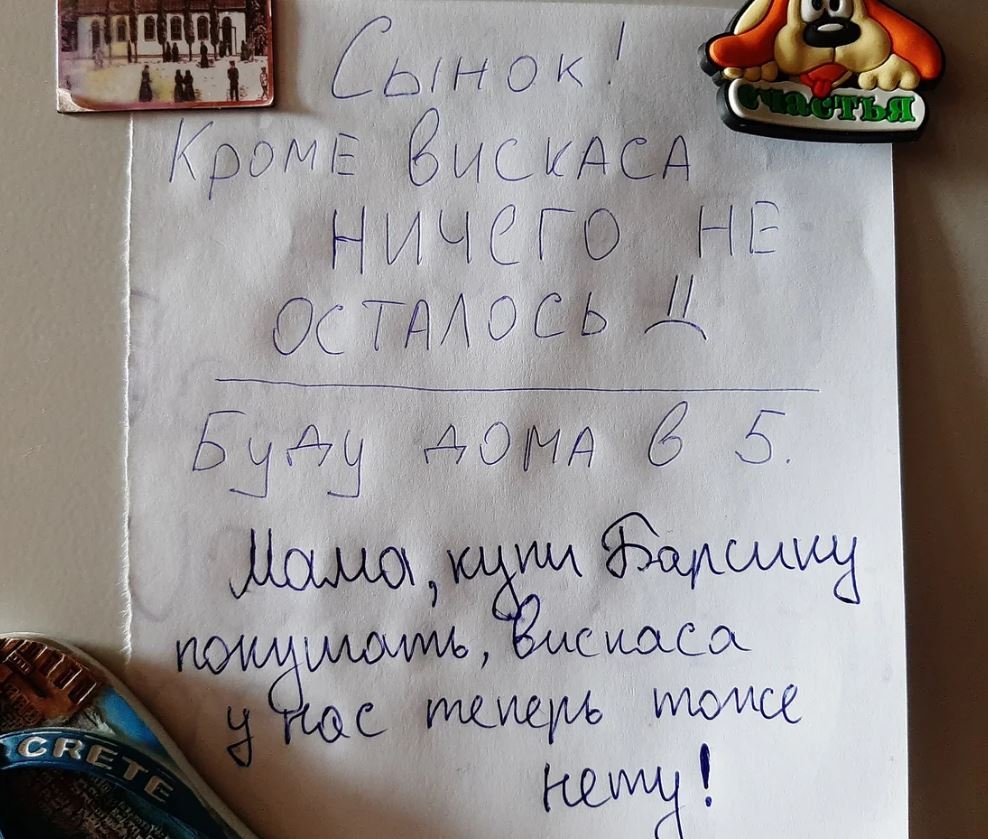 счастья
Сынок!
Кроме вискаса
ничего не
осталось
Буду дома в 5.
Мама, купи Барсику
покушать, вискаса
у нас теперь тоже
нету!
CRETE